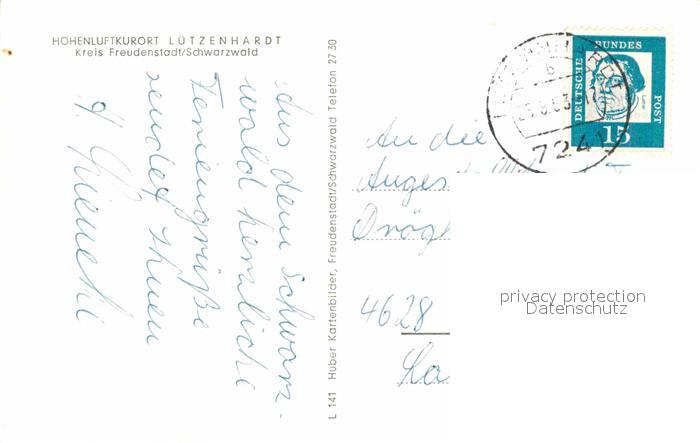 HÖHENLUFTKURORT LÜTZENHARDT
Kreis Freudenstadt/Schwarzwald
Aus dem Schwarz-
wald herzliche
Feriengrüße
sendet Ihnen
L 141 Huber Kartenbilder, Freudenstadt/Schwarzwald Telefon 27 30
An die
Anges
Dróg
4628
La
DEUTSCHE BUNDES POST
15
7241
privacy protection
Datenschutz